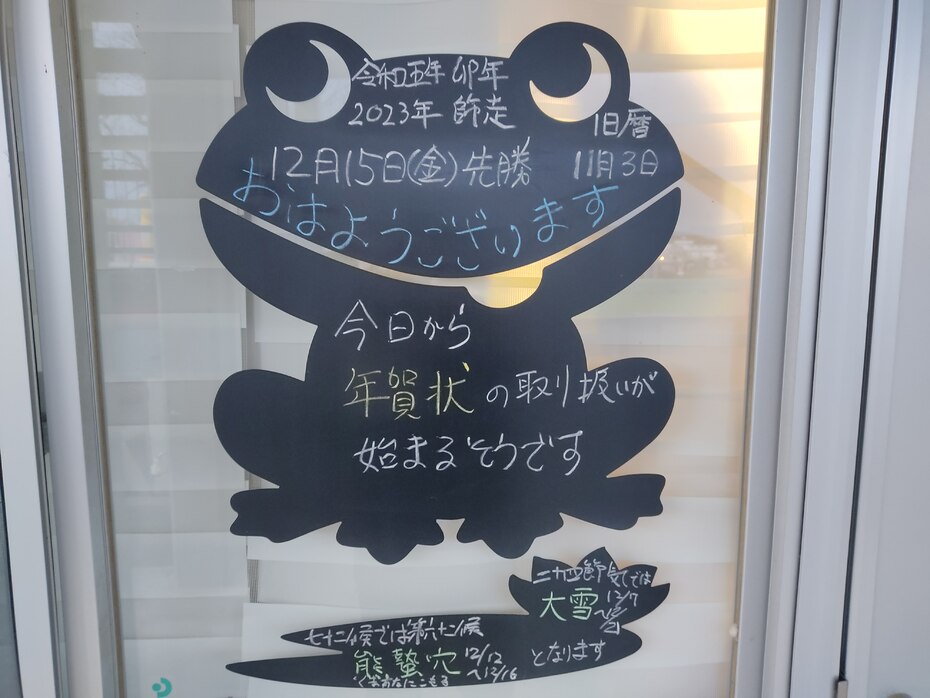 令和五年 卯年
2023年 師走
旧暦
12月15日(金)先勝 11月3日
おはようございます
今日から
年賀状の取り扱いが
始まるそうです
二十四節気では
大雪 12/7
七十二候では第六十二候
熊蟄穴 12/12
～12/16
くまあなにこもる
となります